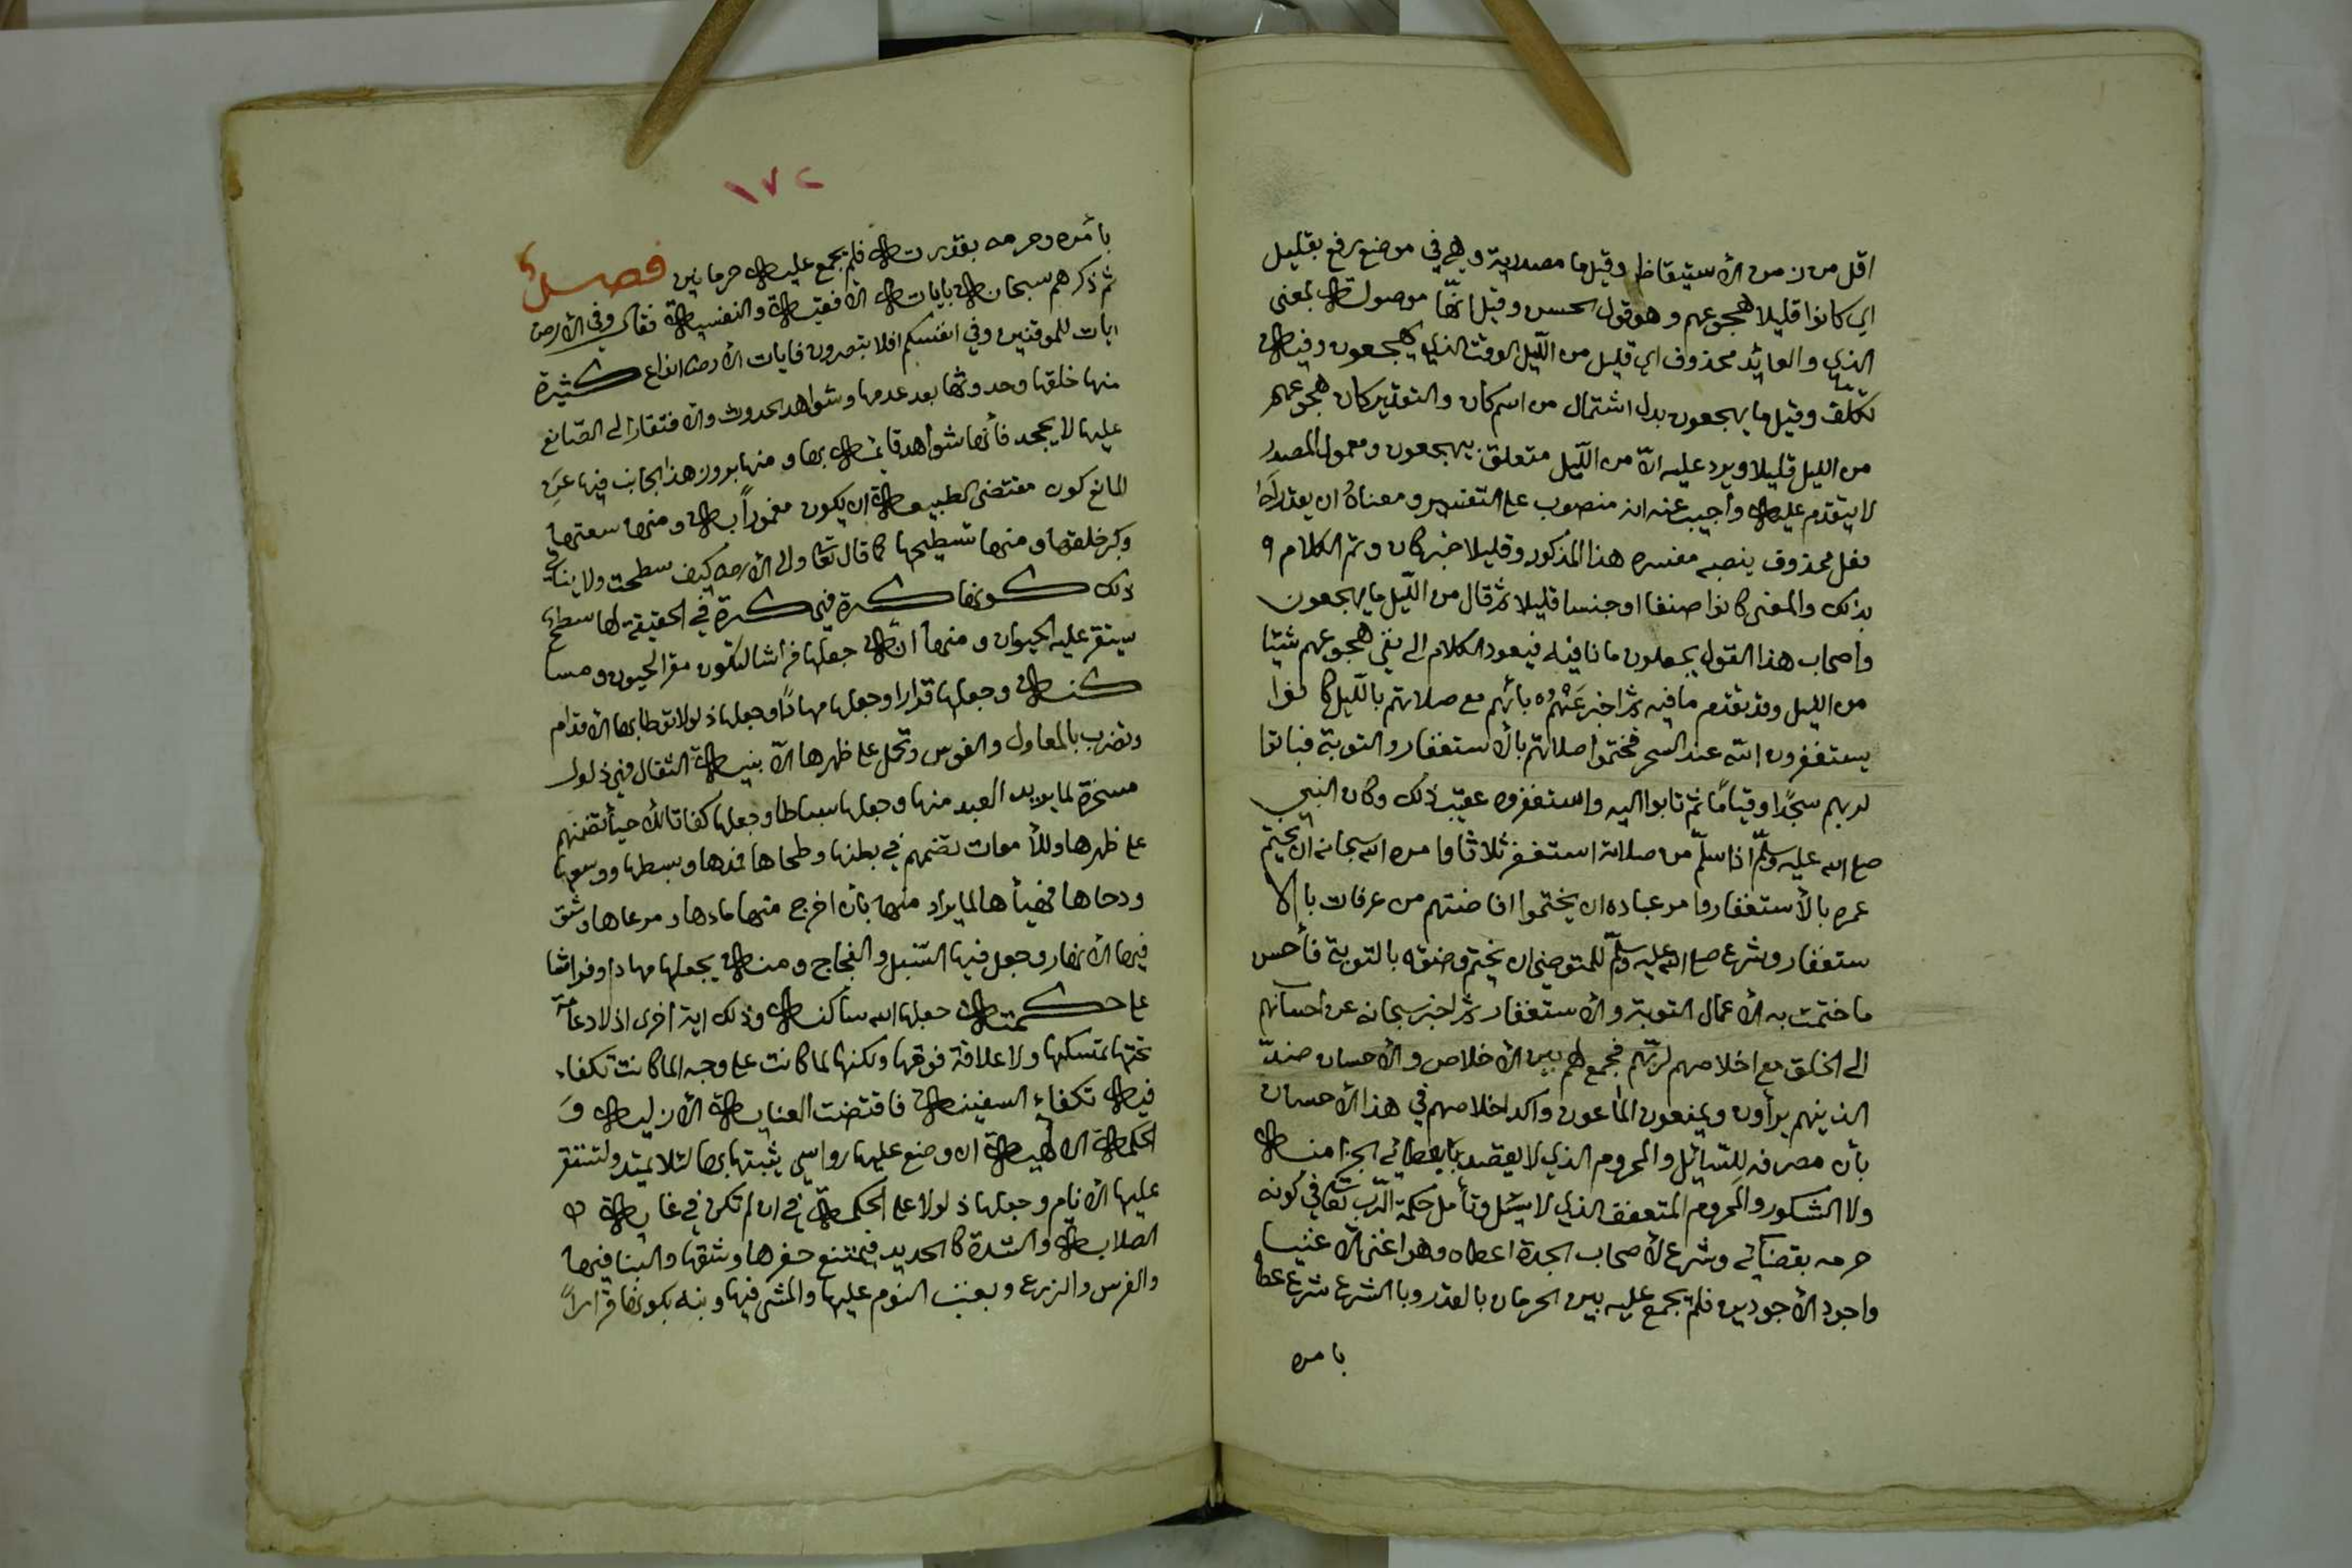 اقل من زمن الأستيقاظ وقيل ما مصدرية وهي في موضع رفع بقليل
اي كانوا قليلا هجوعهم وهو قول الحسن وقيل انّها موصولة بمعنى
الذي والعايد محذوف اي قليل من اللّيل الوقت الذي يهجعون وفيه
تكلّف وقيل ما يهجعون بدل اشتمال من اسم كان والتقدير كان هجوعهم
من الليل قليلا ويرد عليه انّ من اللّيل متعلق بيهجعون ومعمول المصدر
لا يتقدم عليه وأجيب عنه انه منصوب على التفسير ومعناهُ ان يقدر له
فعل محذوف ينصبه مفسره هذا المذكور وقليلا خبر كان وتم الكلام
بذلك والمعنى كانوا صنفا او جنسا قليلا ثم قال من اللّيل ما يهجعون
وأصحاب هذا القول يجعلون ما نافيه فيعود الكلام الى نفي هجوعهم شيئا
من الليل وقد تقدم ما فيه ثم اخبر عنهم بانّهم مع صلاتهم بالّليل كانوا
يستغفرون اللّه عند السحر فختموا صلاتهم بالأستغفار والتوبة فباتوا
لربهم سجّدًا وقيامًا ثمّ تابوا اليه واستغفروه عقيب ذلك وكان النبي
صلى الله عليه وسلّم اذا سلّم من صلاته استغفر ثلاثا وامره الله سبحانه ان يختم
عمره بالأستغفار وامر عباده ان يختموا افاضتهم من عرفات بالا
ستغفار وشرع صلى الله عليه وسلّم للمتوضئ ان يختم وضؤه بالتوبة فأحسن
ما ختمت به الأعمال التوبة والأستغفار ثم اخبر سبحانه عن احسانهم
الى الخلق مع اخلاصهم لربّهم فجمع لهم بين الأخلاص والأحسان ضدّ
الذينهم يراؤن ويمنعون الماعون واكد اخلاصهم في هذا الأحسان
بأن مصرفه للسّائل والمحروم الذي لا يقصد بإعطائه الجزا منه
ولا الشكور والمحروم المتعفف الذي لا يسئل وتأمل حكمة الرّب تعالى في كونه
حرمه بقضائه وشرع لأصحاب الجدة اعطاه وهو اغنى الأغنيا
واجود الأجودين فلم يجمع عليه بين الحرمان بالقدر وبالشرع شرع عطا
بامره
١٧٢
بأمره وحرمه بقدرته فلم يجمع عليه حرمانين فصل
ثم ذكرهم سبحانه باياته الأفقية والنفسية فقال وفي الأرض
ايات للموقنين وفي انفسكم افلا تبصرون فايات الأرض انواع كثيرة
منها خلقها وحدوثها بعد عدمها وشواهد الحدوث والافتقار الى الصّانع
عليها لا يجحد فأنها شواهد قايمة بها ومنها بروز هذا الجانب فيها عن
المانع كون مقتضى الطبيعة ان يكون مغمورًا به ومنها سعتها
وكبر خلقتها ومنها تسطيحها كما قال تعالى والى الأرض كيف سطحت ولا ينافي
ذلك كونها كرة فهي كرة في الحقيقة لها سطح
يستقر عليه الحيوان ومنها انه جعلها فراشا لتكون مقر الحيون ومسا
كنه وجعلها قرارا وجعلها مهادًا وجعلها ذلولا توطا بها الأقدام
وتضرب بالمعاول والفوس وتحمل على ظهرها الأبنية الثقال فهي ذلول
مسخرة لما يريد العبد منها وجعلها بساطا وجعلها كفاتا للأحيا تضمهم
على ظهرها وللأموات تضمهم في بطنها وطحاها فمدها وبسطها ووسعها
ودحاها فهيأها لما يراد منها بأن اخرج منها ماءها ومرعاها وشق
فيها الأنهار وجعل فيها السّبل والفجاج ومنه يجعلها مهادا وفراشا
على حكمته جعلها الله ساكنة وذلك اية اخرى اذ لا دعامة
تحتها تمسكها ولا علاقة فوقها ولكنها لما كانت على وجه الماء كانت تكفاء
فيه تكفاء السفينة فاقتضت العناية الأزلية و
الحكمة الالهية ان وضع عليها رواسي يثبتها بها لئلا يميد ولتستقر
عليها الأنام وجعلها ذلولا على الحكمة في ان لم تكن في غاية
الصلابة والشدة كالحديد فيمتنع حفرها وشقها والبنا فيها
والغرس والزرع ويعنت النوم عليها والمشي فيها ونبه بكونها قرارًا